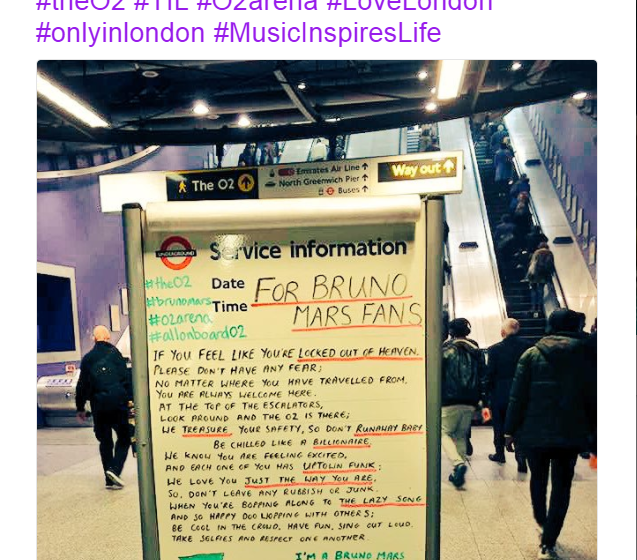 #theO2 #TfL #O2arena #LoveLondon
#onlyinlondon #MusicInspiresLife
The O2
Emirates Air Line
North Greenwich Pier
Buses
Way out
UNDERGROUND
Service information
#theO2
#brunomars
#o2arena
#allonboardO2
Date
Time
FOR BRUNO
MARS FANS
IF YOU FEEL LIKE YOU'RE LOCKED OUT OF HEAVEN.
PLEASE DON'T HAVE ANY FEAR;
NO MATTER WHERE YOU HAVE TRAVELLED FROM.
YOU ARE ALWAYS WELCOME HERE.
AT THE TOP OF THE ESCALATORS,
LOOK AROUND AND THE O2 IS THERE;
WE TREASURE YOUR SAFETY, SO DON'T RUNAWAY BABY
BE CHILLED LIKE A BILLIONAIRE.
WE KNOW YOU ARE FEELING EXCITED,
AND EACH ONE OF YOU HAS UPTOWN FUNK;
WE LOVE YOU JUST THE WAY YOU ARE,
SO, DON'T LEAVE ANY RUBBISH OR JUNK.
WHEN YOU'RE BOPPING ALONG TO THE LAZY SONG
AND SO HAPPY DOO WOPPING WITH OTHERS;
BE COOL IN THE CROWD, HAVE FUN, SING OUT LOUD.
TAKE SELFIES AND RESPECT ONE ANOTHER.
I'M A BRUNO MARS